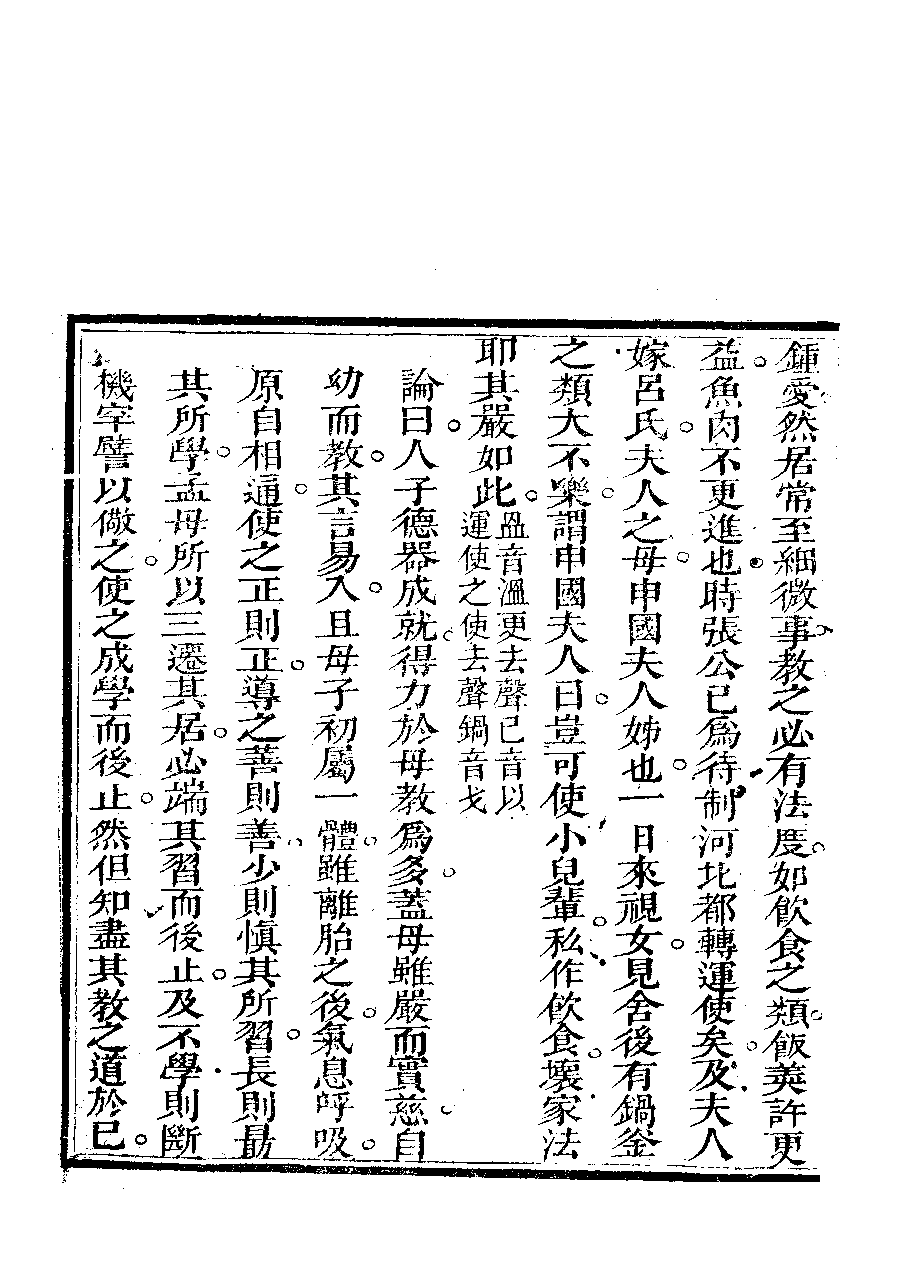 鍾愛然居常至細微事教之必有法度如飲食之類飯羹許更
益魚肉不更進也時張公已爲待制河北都轉運使矣及夫人
嫁呂氏夫人之母申國夫人姊也一日來視女見舍後有鍋釜
之類大不樂謂申國夫人曰豈可使小兒輩私作飲食壞家法
耶其嚴如此
益音溫更去聲已音以
運使之使去聲鍋音戈
論曰人子德器成就得力於母教爲多蓋母雖嚴而實慈自
幼而教其言易入且母子初屬一體雖離胎之後氣息呼吸
原自相通使之正則正導之善則善少則愼其所習長則最
其所學孟母所以三遷其居必端其習而後止及不學則斷
機宰譬以儆之使之成學而後止然但知盡其教之道於已